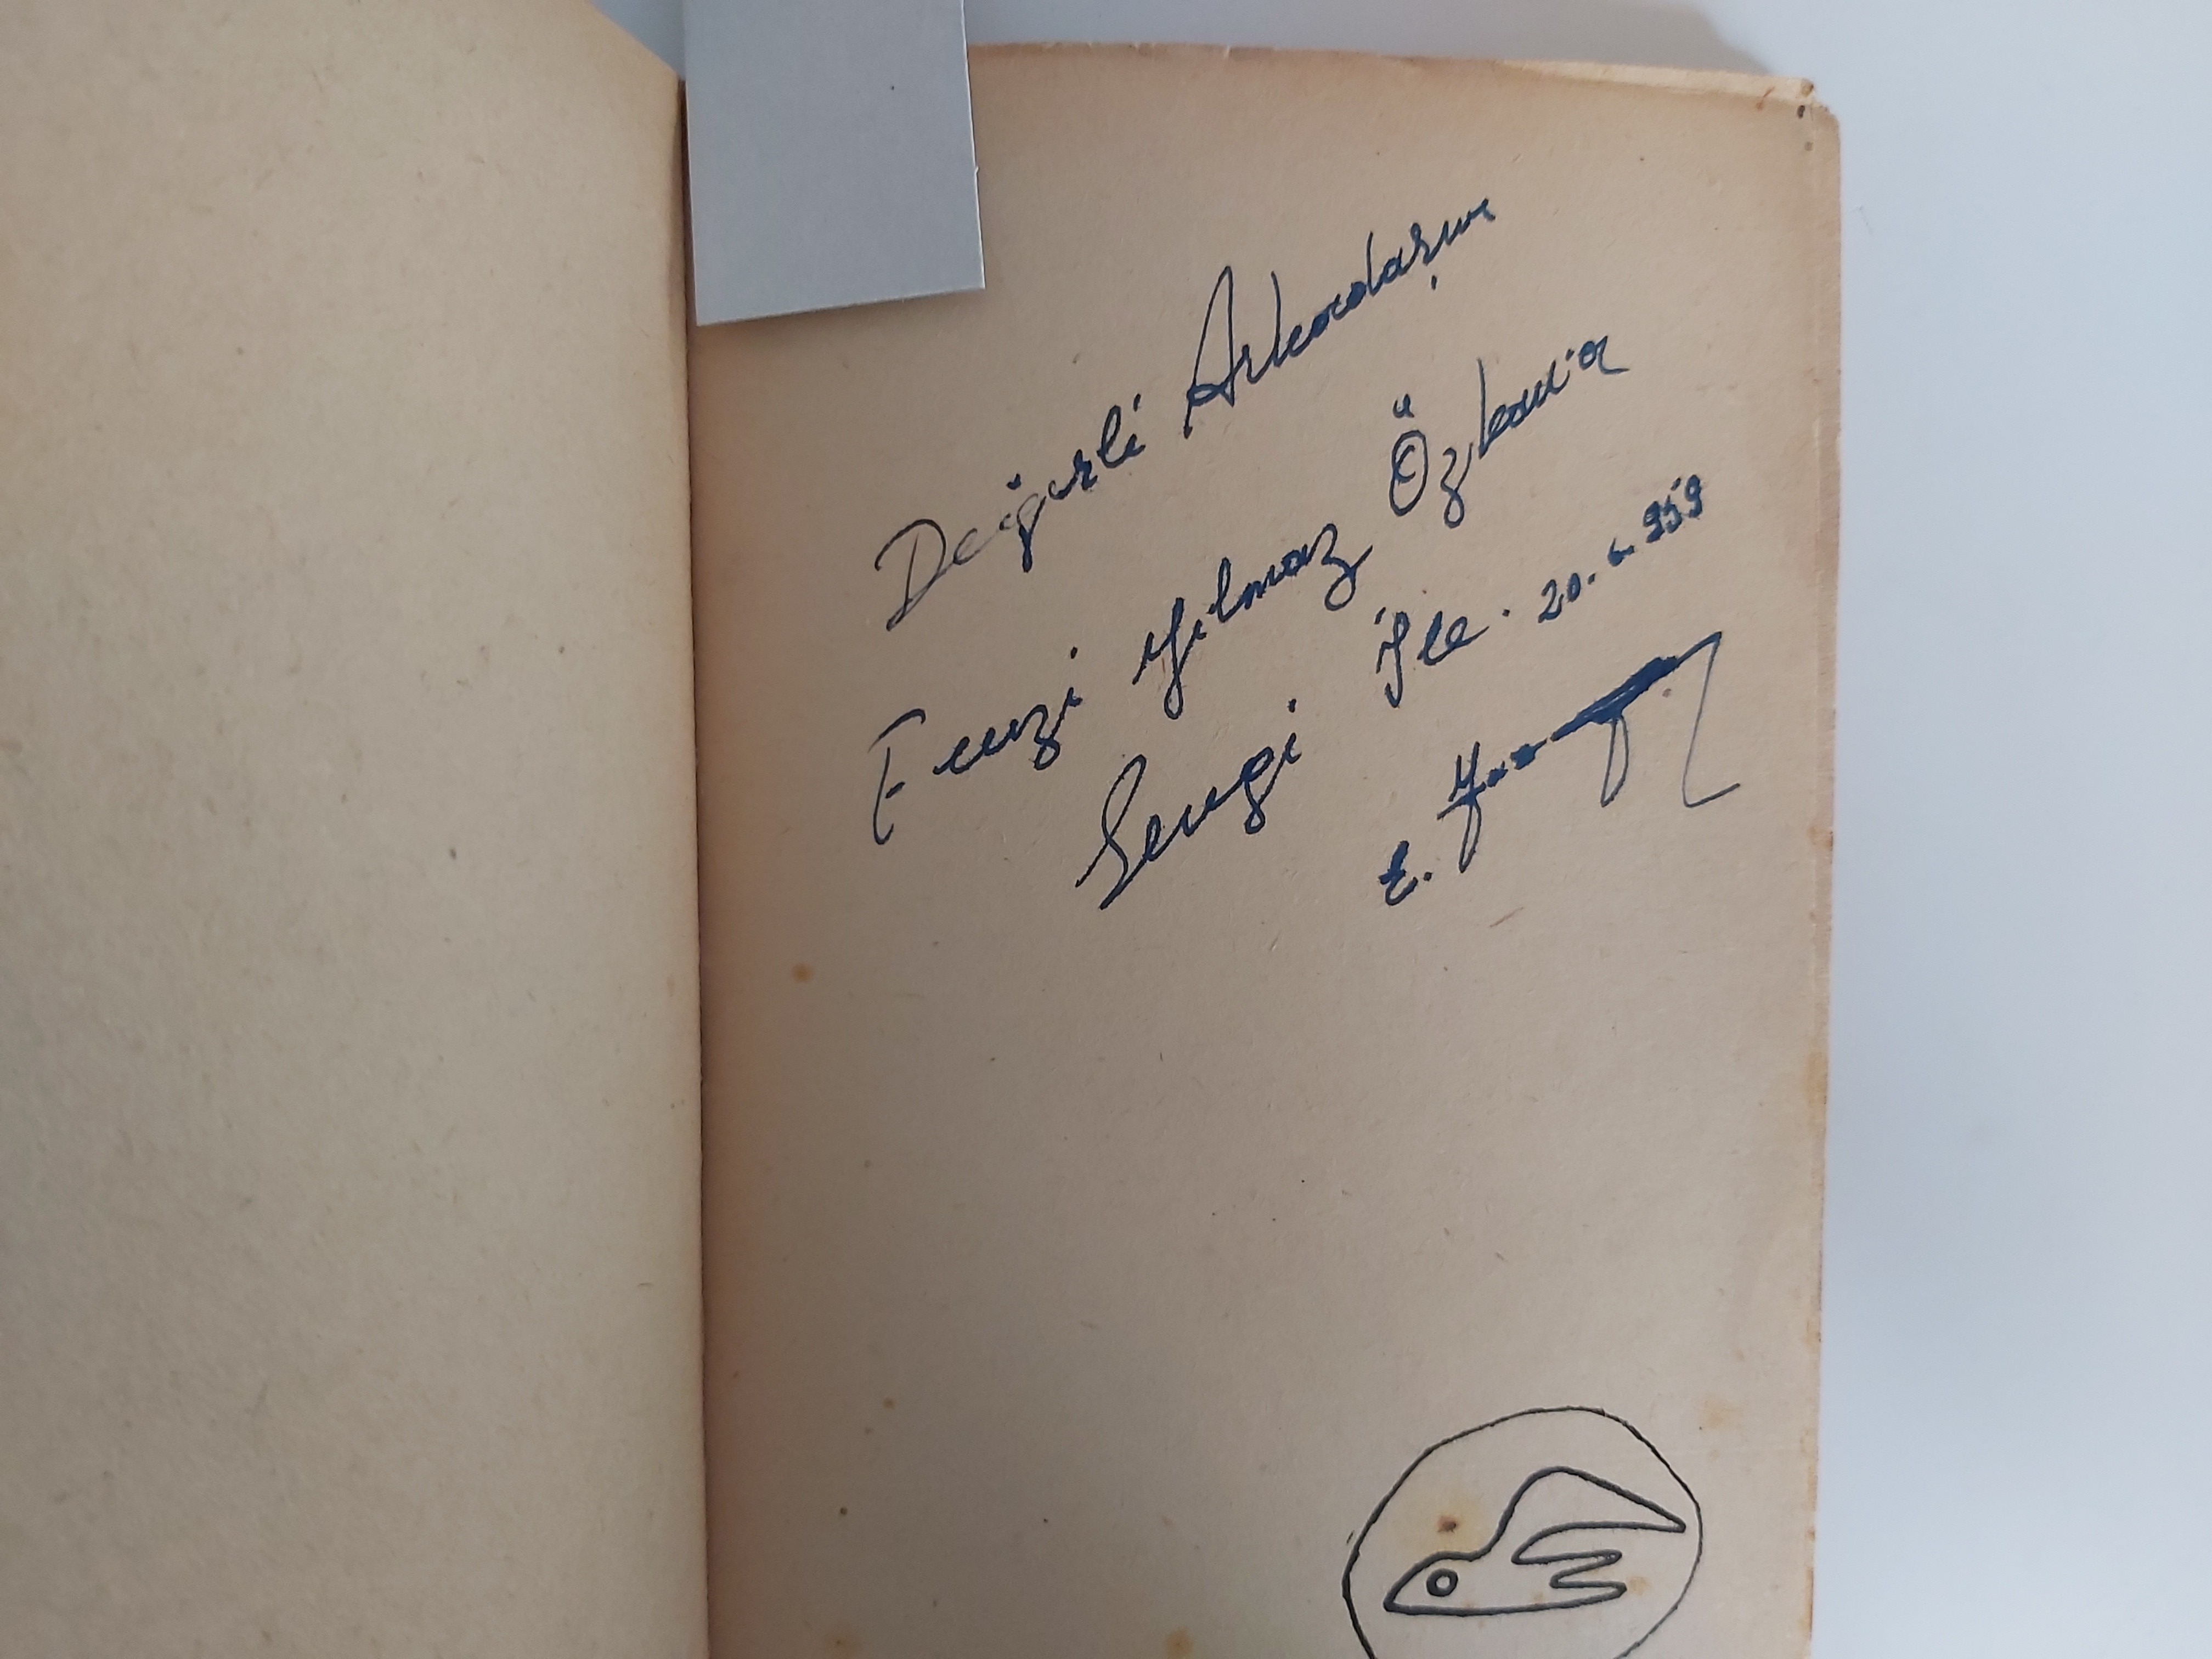 Değerli Arkadaşım
Fevzi Yılmaz Özkavia
Sevgi İle. 20.6.959
E.